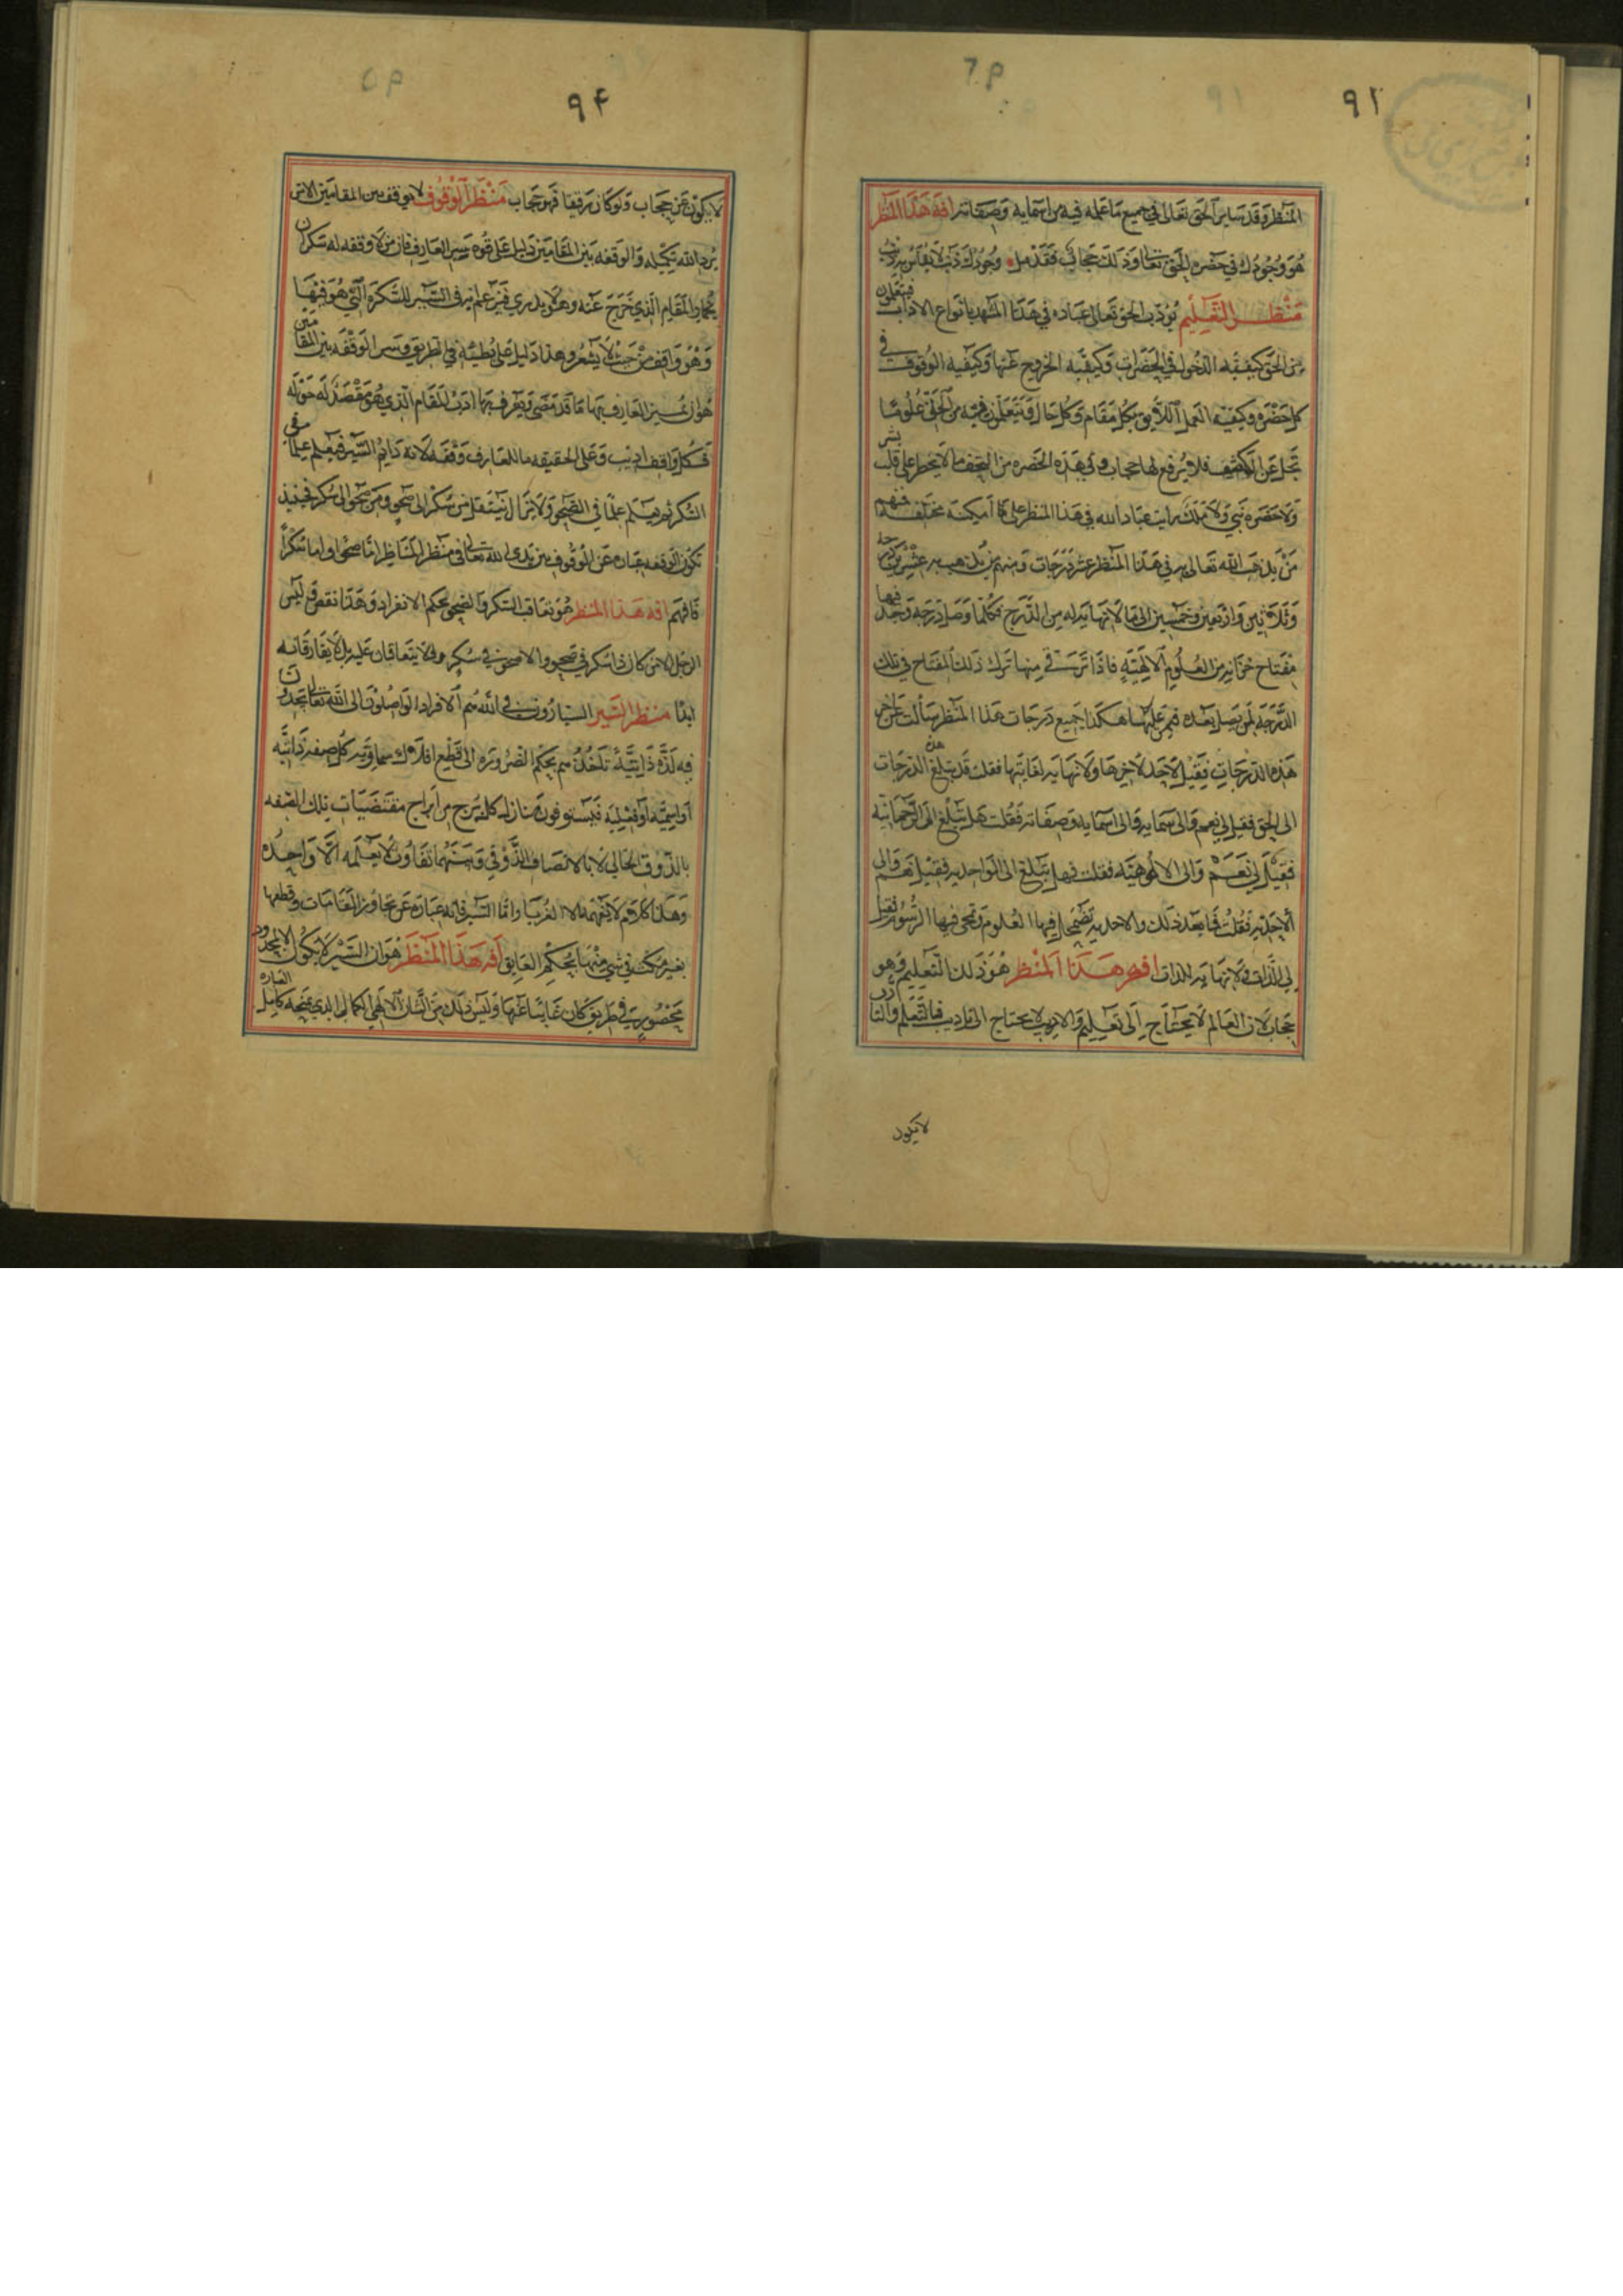 ٩٢
المنظر وقد ساير الحق تعالى في جميع ما عمله فيه من اسمايه وصفاته افة هذا المنظر
هو وجودك في حضرة الحق تعالى وذلك حجاب فقد قيل وجودك ذنب لا يقاس به ذنب
منظر التعليم يودب الحق تعالى عباده في هذا المشهد بانواع الاداب فيتعلمون
من الحق كيفية الدخول في الحضرات وكيفية الخروج عنها وكيفية الوقوف في
كل حضرة وكيفية العمل اللايق بكل مقام وكل حال ويتعلمون فيه من الحق علوما
تجل عن الكشف فلا يرفع لها حجاب وفي هذه الحضرة من التحف ما لا يخطر على قلب بشر
ولا حضره نبي ولا ملك رايت عباد الله في هذا المنظر على امكنة مختلفة فمنهم
من يذهب الله تعالى به في هذا المنظر عشر درجات ومنهم من يذهب به عشرين درجة
وثلاثين واربعين وخمسين الى ما لا نهاية له من الدرج فكلما وصل درجة وجد فيها
مفتاح خزانة من العلوم الالهية فاذا ترقى منها ترك ذلك المفتاح في تلك
الدرجة لمن يصل بعده فيمر عليها هكذا جميع درجات هذا المنظر سالت عن اخر
هذه الدرجات فقيل لا حد لاخرها ولا نهاية لغايتها فقلت قد تبلغ هذه الدرجات
الى الحق فقيل لي نعم والى سمايه والى اسمايه وصفاته فقلت هل تبلغ الى الرحمانية
فقيل لي نعم والى الالوهية فقلت فهل تبلغ الى الواحدية فقيل نعم والى
الاحدية فقلت فما بعد ذلك والاحدية تضمحل فيها العلوم وتمحى فيها الرسوم فقيل
لي الذات ولا نهاية للذات افة هذا المنظر هو ذلك التعليم وهو
حجاب لان العالم لا يحتاج الى تعليم والاديب لا يحتاج الى تاديب فالتعلم والتادب
لا يكون
٩٤
لا يكون عن حجاب ولو كان رقيقا فهو حجاب منظر الوقوف لا يوقف بين المقامين الا من
يرد الله تكميله والوقفة بين المقامين دليل على قوة سير العارف فان من لا وقفة له سكران
بخمار المقام الذي خرج عنه وهو لا يدري فمن علم به في السير للسكرة التي هو فيها
وهو واقف من حيث لا يشعر وهذا دليل على بطئه في الطريق وسر الوقفة بين المقامين
هو ان يميز العارف بها ما قد مضى ويعرف بها ادب المقام الذي هو مقصد له حوله
فكل واقف اديب وعلى الحقيقة ما للعارف وقفة لانه دايم السير فيعلم علما في
السكر ثم يعلم علما في الصحو ولا يزال ينتقل من سكر الى صحو ومن صحو الى سكر فحينئذ
تكون الوقفة عبارة عن الوقوف بين يدي الله تعالى في منظر المناظر اما صحوا واما سكرا
فافهم افة هذا المنظر هو تعاقب السكر والصحو بحكم الانفراد وهذا نقص وليس
الرجل الا من كان ذا سكر في صحو والا صحو في سكر ولا يتعاقبان عليه بل لا يفارقانه
ابدا منظر السير السيارون في الله هم الافراد الواصلون الى الله تعالى يجدون
فيه لذة ذاتية تاخذ بهم بحكم الضرورة الى قطع افلاك سماوية كل صفة ذاتية
او اسمية او فعلية فيستوفون منازل كل برج من ابراج مقتضيات تلك الصفة
بالذوق الحالي لا بالاتصاف الذوقي وبينهما تفاوت لا يعلمه الا واحده
وهذا كلام لا يفهمه الا الغربا واما السير فانه عبارة عن تجاوز المقامات وقطعها
بغير مكث في شي منها بحكم العايق افة هذا المنظر هو ان السير لا يكون الا لمحدود
محصور في طريق كان غايبا عنها وليس ذلك من الشان الالهي الكمالي الذي تمنحه كامل العباره